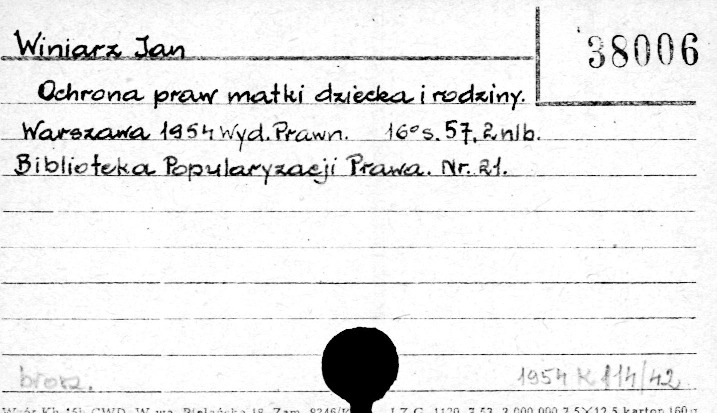 Winiarz Jan
38006
Ochrona praw matki dziecka i rodziny.
Warszawa 1954 Wyd. Prawn. 16° s. 57, 2 nlb.
Biblioteka Popularyzacji Prawa. Nr. 21.
brosz.
1954 K 114/42
Wzór Kb 15b CWD, W-wa, Bielańska 18, Zam. 8246/ 3.000.000 7,5×12,5 karton 160 g